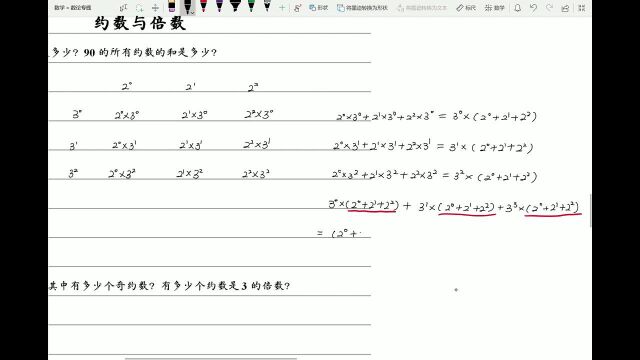 数学 » 数论专题
将墨迹转换为形状
将墨迹转换为文本
标尺
数学
重播
约数与倍数
多少？90 的所有约数的和是多少？
2⁰ 2¹ 2²
3⁰ 2⁰×3⁰ 2¹×3⁰ 2²×3⁰
2⁰×3⁰+2¹×3⁰+2²×3⁰ = 3⁰×(2⁰+2¹+2²)
3¹ 2⁰×3¹ 2¹×3¹ 2²×3¹
2⁰×3¹+2¹×3¹+2²×3¹ = 3¹×(2⁰+2¹+2²)
3² 2⁰×3² 2¹×3² 2²×3²
2⁰×3²+2¹×3²+2²×3² = 3²×(2⁰+2¹+2²)
3⁰×(2⁰+2¹+2²) + 3¹×(2⁰+2¹+2²) + 3³×(2⁰+2¹+2²)
= (2⁰+
其中有多少个奇约数？有多少个约数是 3 的倍数？